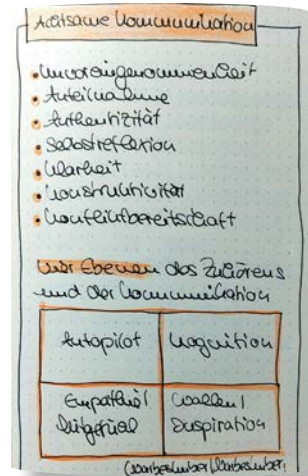 Achtsame Kommunikation
• Unvoreingenommenheit
• Anteilnahme
• Authentizität
• Selbstreflexion
• Klarheit
• Konstruktivität
• Konfliktbereitschaft
vier Ebenen des Zuhörens
und der Kommunikation
Autopilot
Kognition
Empathie/
Mitgefühl
Quellen/
Inspiration